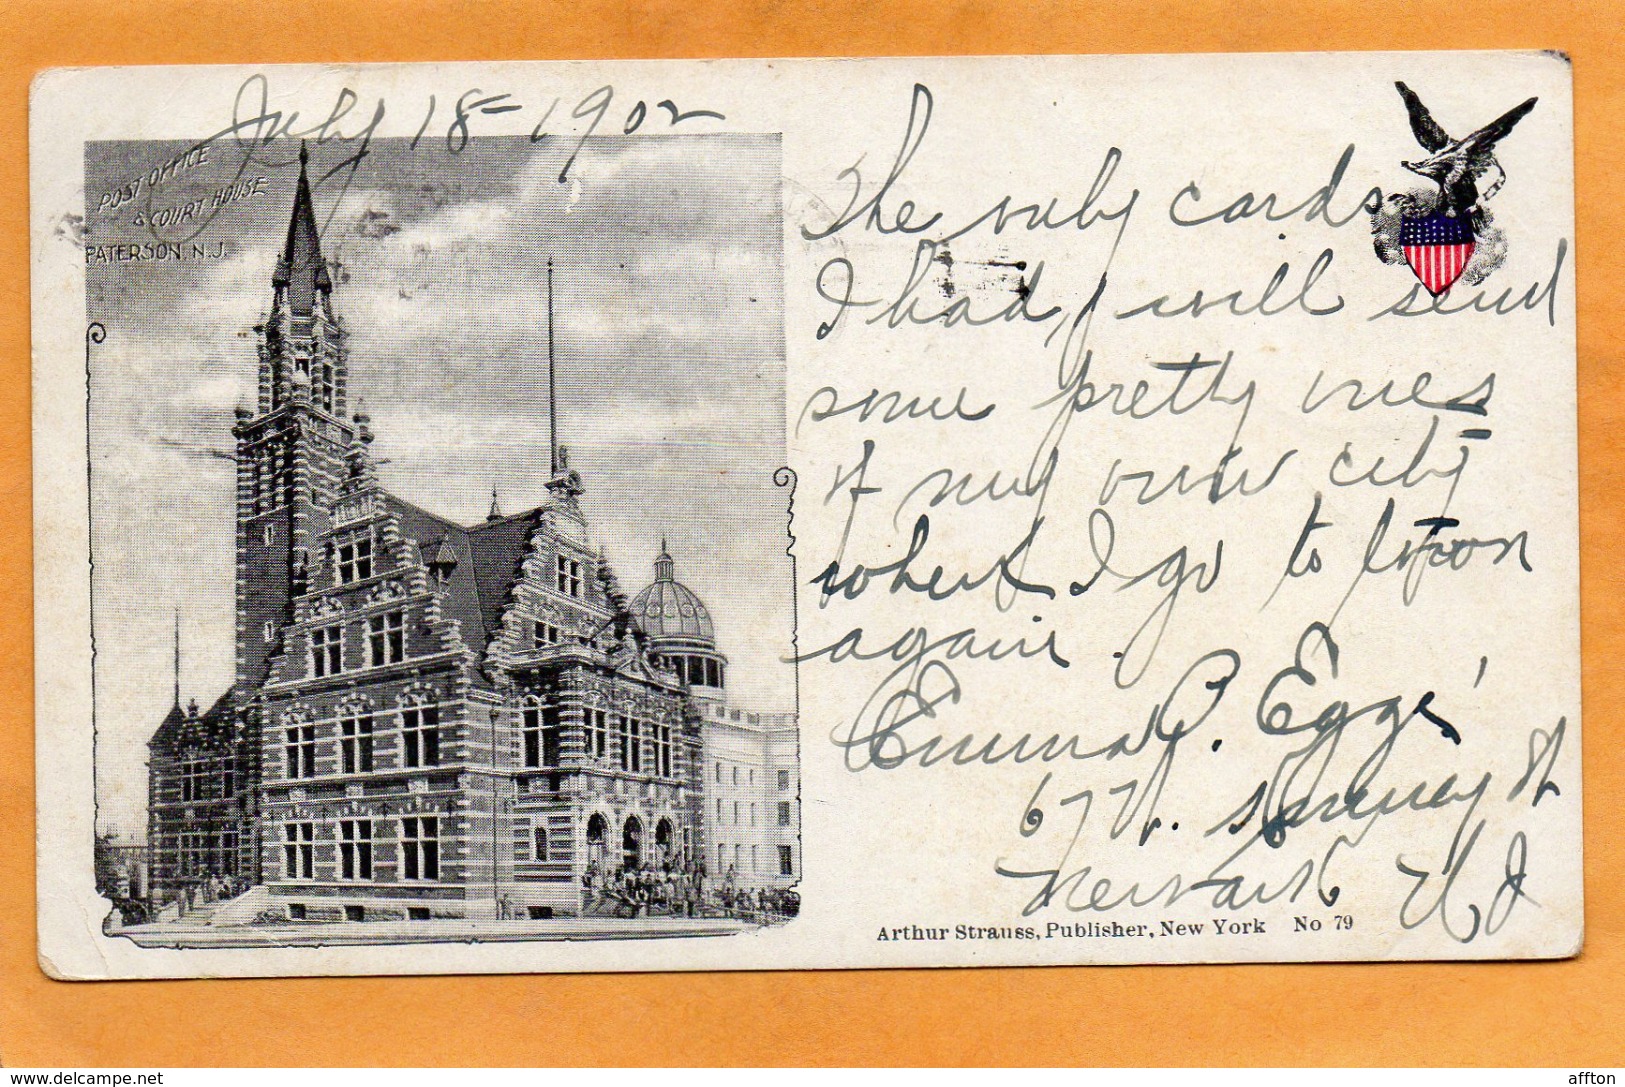 July 18 - 1902
POST OFFICE
& COURT HOUSE
PATERSON, N.J.
The only cards
I had, I will send
some pretty ones
of my own city
when I go to town
again.
Emma P. Egge
677. St
Newark N J
Arthur Strauss, Publisher, New York No 79
affton